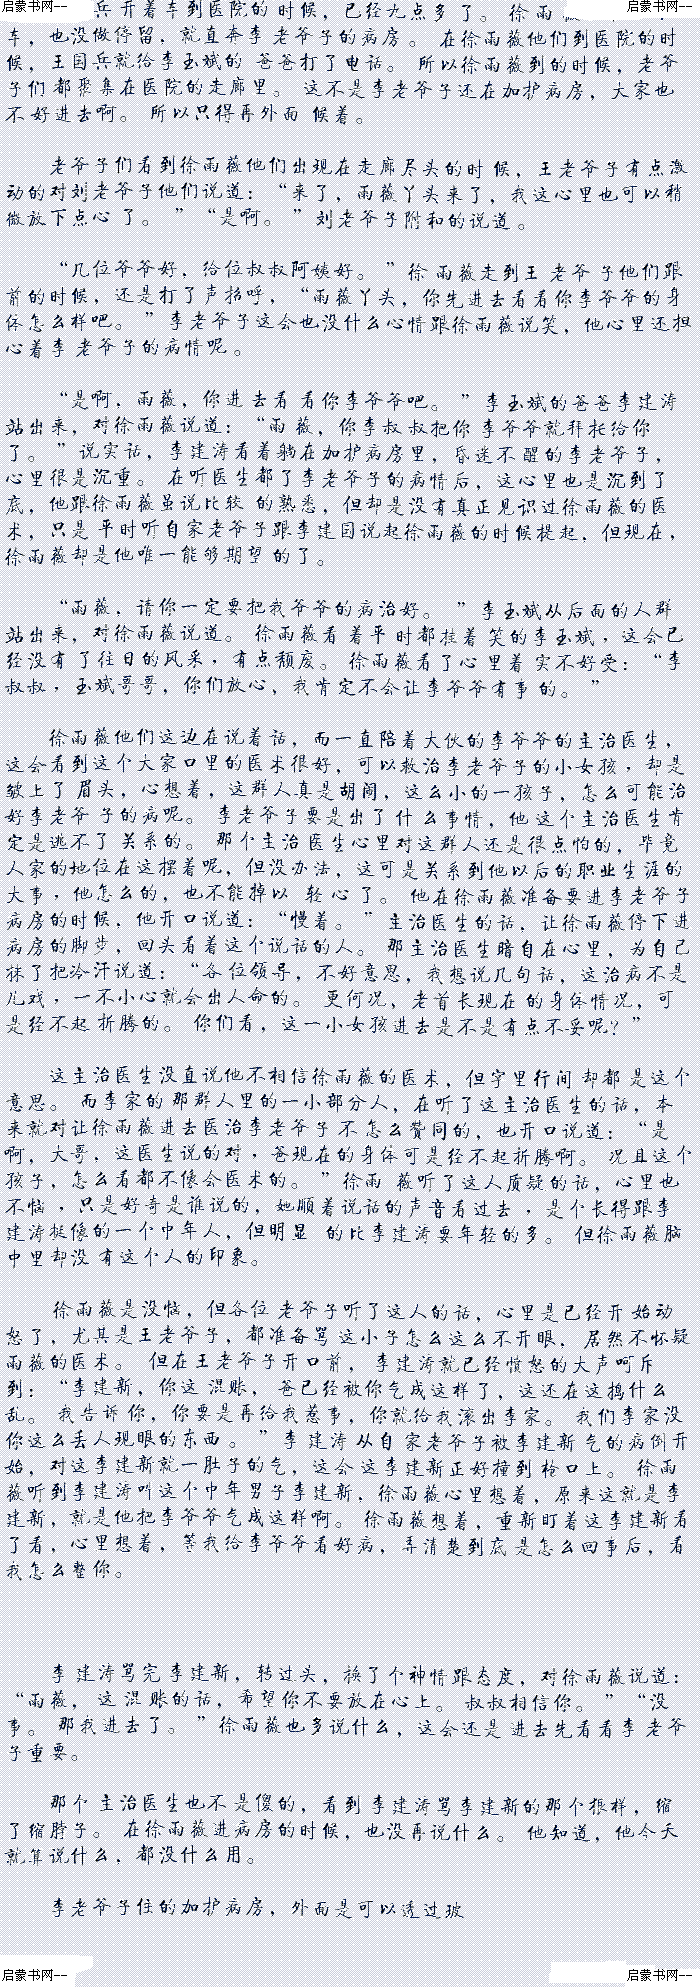 启蒙书网--
启蒙书网--
兵开着车到医院的时候，已经九点多了。 徐雨薇
车，也没做停留，就直奔李老爷子的病房。 在徐雨薇他们到医院的时
候，王国兵就给李玉斌的 爸爸打了电话。 所以徐雨薇到的时候，老爷
子们都聚集在医院的走廊里。 这不是李老爷子还在加护病房，大家也
不好进去啊。 所以只得再外面 候着。
老爷子们看到徐雨薇他们出现在走廊尽头的时候，王老爷子有点激
动的对刘老爷子他们说道：“来了，雨薇丫头来了，我这心里也可以稍
微放下点心了。 ”“是啊。 ”刘老爷子附和的说道。
“几位爷爷好，给位叔叔阿姨好。 ”徐雨薇走到王 老爷 子他们跟
前的时候，还是打了声招呼，“雨薇丫头，你先进去看看你李爷爷的身
体怎么样吧。 ”李老爷子这会也没什么心情跟徐雨薇说笑，他心里还担
心着李 老爷子的病情呢。
“是啊，雨薇，你进 去看 看你李爷爷吧。 ”李玉斌的爸爸李建涛
站出来，对徐雨薇说道：“雨薇，你李叔叔把你李爷爷就拜托给你
了。 ”说实话，李建涛看着躺在加护病房里，昏迷不醒的李老爷子，
心里很是沉重。 在听医生都了李老爷子的病情后，这心里也是沉到了
底，他跟徐雨薇虽说比较 的熟悉，但却是没有真正见识过徐雨薇的医
术，只是平时听自家老爷子跟李建国说起徐雨薇的时候提起，但现在，
徐雨薇却是他唯一能够期望的了。
“雨薇，请你一定要把我爷爷的病治好。 ”李玉斌从后面的人群
站出来，对徐雨薇说道。 徐雨薇看着平时都挂着笑的李玉斌，这会已
经没有了往日的风采，有点颓废。 徐雨薇看了心里着实不好受：“李
叔叔，玉斌哥哥，你们放心，我肯定不会让李爷爷有事的。 ”
徐雨薇他们这边在说着话，而一直陪着大伙的李爷爷的主治医生，
这会看到这个大家口里的医术很好，可以救治李老爷子的小女孩，却是
皱上了眉头，心想着，这群人真是胡闹，这么小的一孩子，怎么可能治
好李老爷子的病呢。 李老爷子要是出了什么事情，他这个主治医生肯
定是逃不了关系的。 那个主治医生心里对这群人还是很点怕的，毕竟
人家的地位在这摆着呢，但没办法，这可是关系到他以后的职业生涯的
大事，他怎么的，也不能掉以 轻心了。 他在徐雨薇准备要进李老爷子
病房的时候，他开口说道：“慢着。 ”主治医生的话，让徐雨薇停下进
病房的脚步，回头看着这个说话的人。 那主治医生暗自在心里，为自己
抹了把冷汗说道：“各位领导，不好意思，我想说几句话，这治病不是
儿戏，一不小心就会出人命的。 更何况，老首长现在的身体情况，可
是经不起折腾的。 你们看，这一小女孩进去是不是有点不妥呢？”
这主治医生没直说他不相信徐雨薇的医术，但字里行间却都是这个
意思。 而李家的那群人里的一小部分人，在听了这主治医生的话，本
来就对让徐雨薇进去医治李老爷子不怎么赞同的，也开口说道：“是
啊，大哥，这医生说的对，爸现在的身体可是经不起折腾啊。 况且这个
孩子，怎么看都不像会医术的。 ”徐雨薇听了这人质疑的话，心里也
不恼，只是好奇是谁说的，她顺着说话的声音看过去，是个长得跟李
建涛挺像的一个中年人，但明显 的比李建涛要年轻的多。 但徐雨薇脑
中里却没有这个人的印象。
徐雨薇是没恼，但各位老爷子听了这人的话，心里是已经开始动
怒了，尤其是王老爷子，都准备骂这小子怎么这么不开眼，居然不怀疑
雨薇的医术。 但在王老爷子开口前， 李建涛就已经愤怒的大声呵斥
到：“李建新，你这混账， 爸已经被你气成这样了，这还在这捣什么
乱。 我告诉你，你要是再给我惹事，你就给我滚出李家。 我们李家没
你这么丢人现眼的东西。 ”李建涛从自家老爷子被李建新气的病倒开
始，对这李建新就一肚子的气，这会这李建新正好撞到枪口上。 徐雨
薇听到李建涛叫这个中年男子李建新，徐雨薇心里想着，原来这就是李
建新，就是他把李爷爷气成这样啊。 徐雨薇想着，重新盯着这李建新看
了看，心里想着，等我给李爷爷看好病，弄清楚到底是怎么回事后，看
我怎么整你。
李建涛骂完李建新，转过头，换了个神情跟态度，对徐雨薇说道：
“雨薇，这混账的话，希望你不要放在心上。 叔叔相信你。 ”“没
事。 那我进去了。 ”徐雨薇也多说什么，这会还是进去先看看李老爷
子重要。
那个主治医生也不是傻的，看到李建涛骂李建新的那个狠样，缩
了缩脖子。 在徐雨薇进病房的时候，也没再说什么。 他知道，他今天
就算说什么，都没什么用。
李老爷子住的加护病房，外面是可以透过玻
启蒙书网--
启蒙书网--